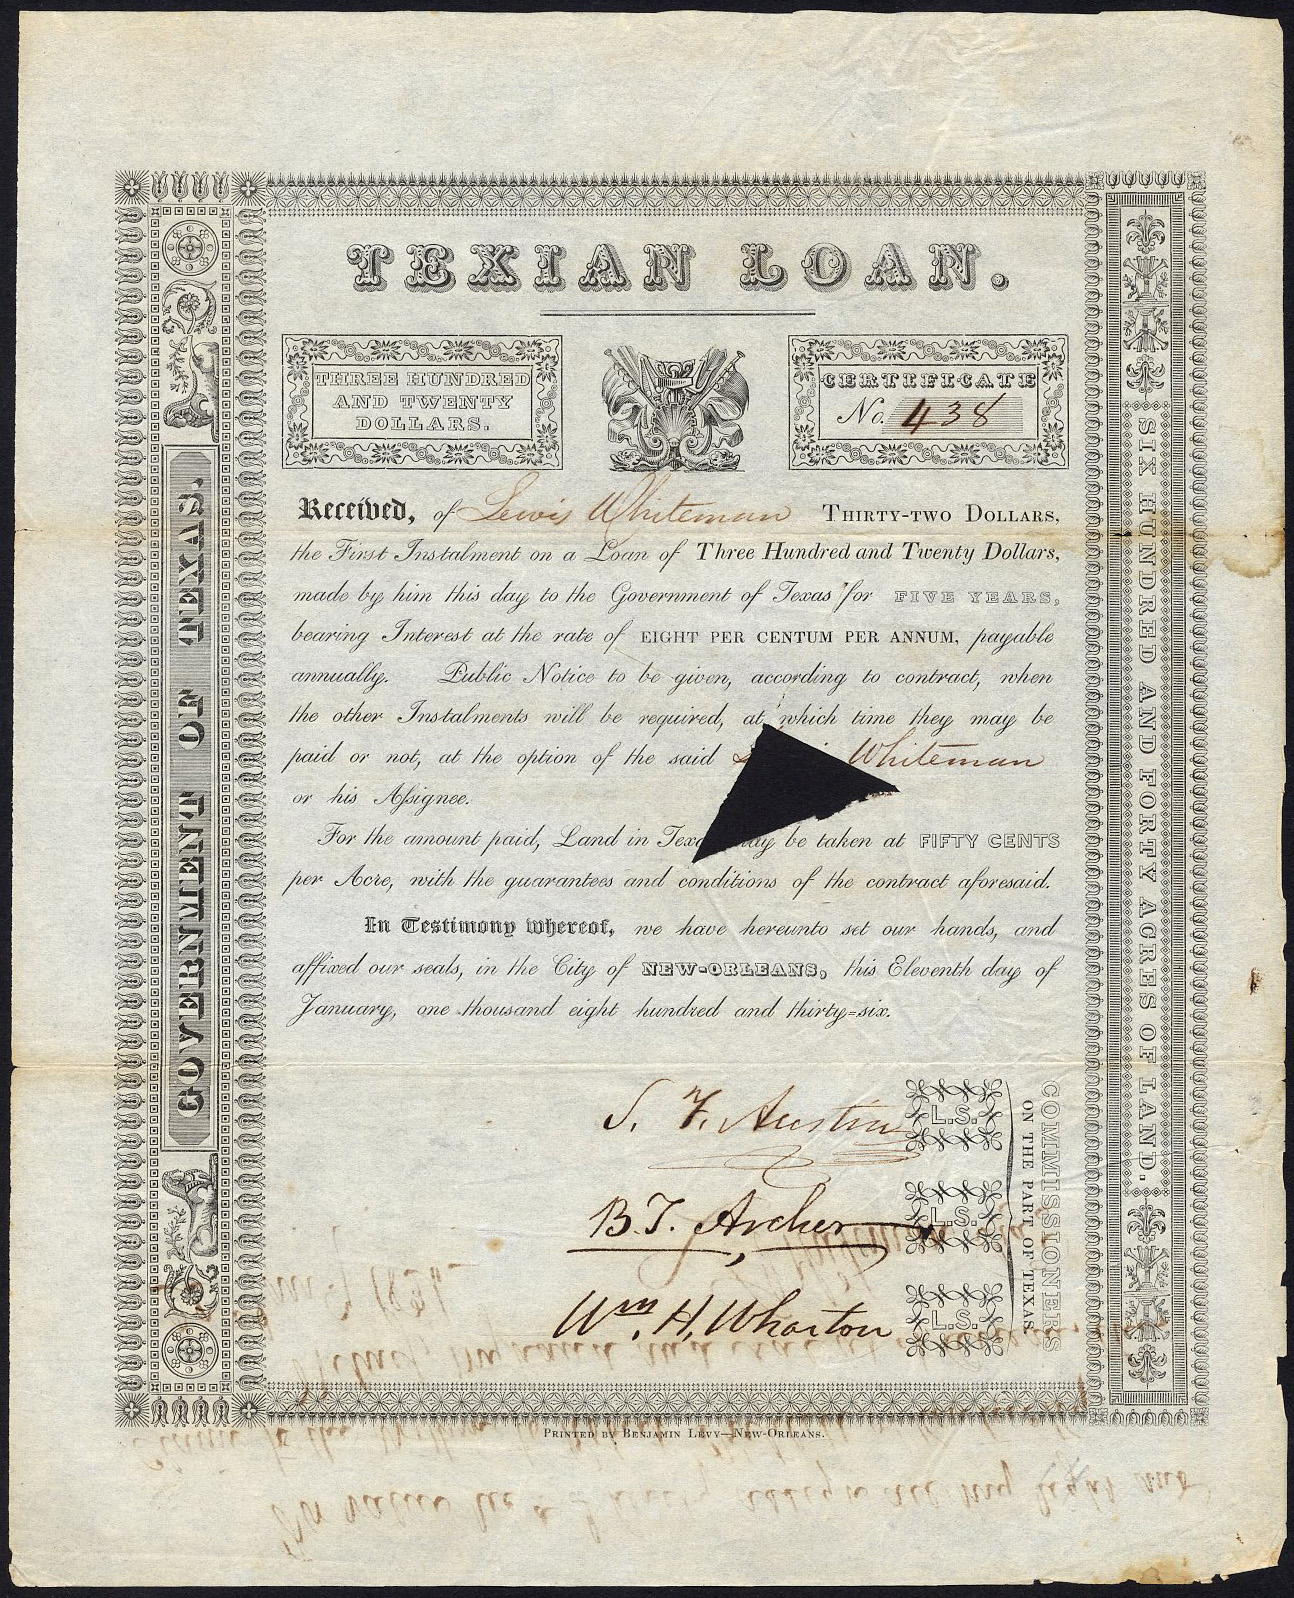 TEXIAN LOAN.
THREE HUNDRED
AND TWENTY
DOLLARS.
CERTIFICATE
No. 438
Received, of Lewis Whiteman THIRTY-TWO DOLLARS,
the First Instalment on a Loan of Three Hundred and Twenty Dollars,
made by him this day to the Government of Texas for FIVE YEARS,
bearing Interest at the rate of EIGHT PER CENTUM PER ANNUM, payable
annually. Public Notice to be given, according to contract, when
the other Instalments will be required, at which time they may be
paid or not, at the option of the said Whiteman
or his Assignee.
For the amount paid, Land in may be taken at FIFTY CENTS
per Acre, with the guarantees and conditions of the contract aforesaid.
In Testimony whereof, we have hereunto set our hands, and
affixed our seals, in the City of NEW-ORLEANS, this Eleventh day of
January, one thousand eight hundred and thirty=six.
S. F. Austin L.S.
B. T. Archer L.S.
Wm. H. Wharton L.S.
COMMISSIONERS
ON THE PART OF TEXAS
GOVERNMENT OF TEXAS.
SIX HUNDRED AND FORTY ACRES OF LAND.
PRINTED BY BENJAMIN LEVY—NEW-ORLEANS.